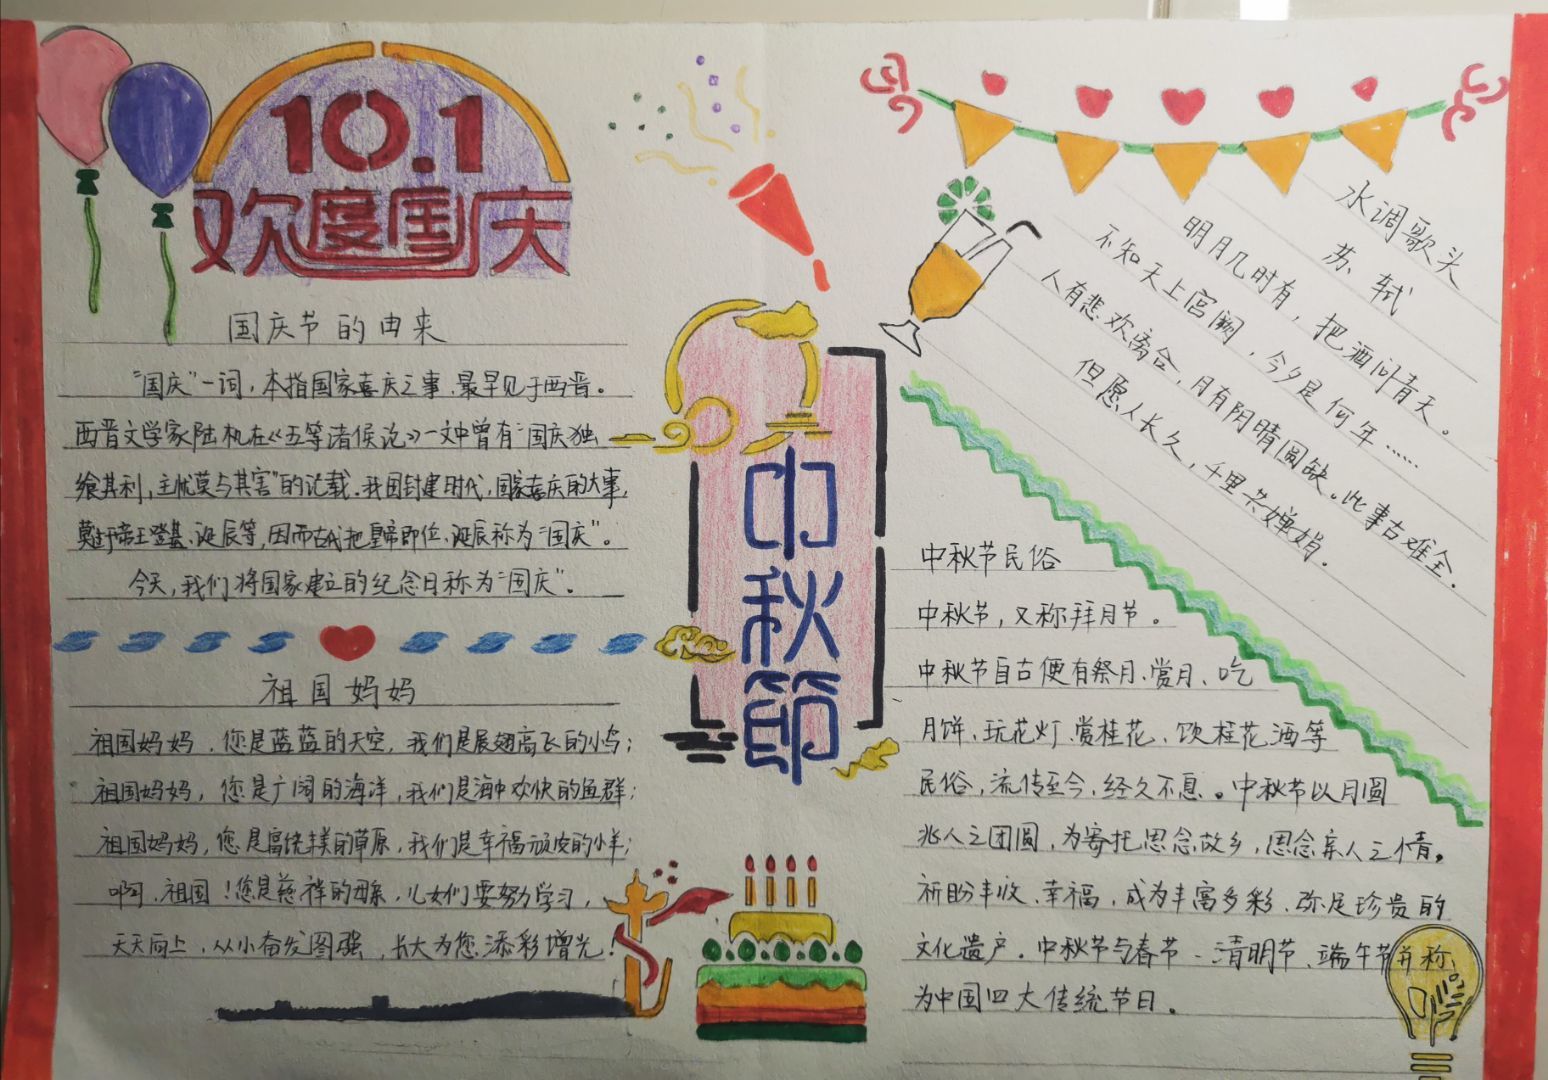 10.1
欢度国庆
国庆节的由来
“国庆”一词，本指国家喜庆之事，最早见于西晋。
西晋文学家陆机在《五等诸侯论》一文中曾有“国庆独
飨其利，主忧莫与其害”的记载。我国封建时代，国家喜庆的大事，
莫过于帝王登基、诞辰等，因而古代把皇帝即位、诞辰称为“国庆”。
今天，我们将国家建立的纪念日称为“国庆”。
祖国妈妈
祖国妈妈，您是蓝蓝的天空，我们是展翅高飞的小鸟；
祖国妈妈，您是广阔的海洋，我们是海中欢快的鱼群；
祖国妈妈，您是富饶美丽的草原，我们是幸福顽皮的小羊；
啊，祖国！您是慈祥的母亲，儿女们要努力学习，
天天向上，从小奋发图强，长大为您添彩增光！
中秋節
水调歌头
苏轼
明月几时有，把酒问青天。
不知天上宫阙，今夕是何年……
人有悲欢离合，月有阴晴圆缺。此事古难全。
但愿人长久，千里共婵娟。
中秋节民俗
中秋节，又称拜月节。
中秋节自古便有祭月、赏月、吃
月饼、玩花灯、赏桂花、饮桂花酒等
民俗，流传至今，经久不息。中秋节以月圆
兆人之团圆，为寄托思念故乡，思念亲人之情，
祈盼丰收、幸福，成为丰富多彩、弥足珍贵的
文化遗产。中秋节与春节、清明节、端午节并称
为中国四大传统节日。